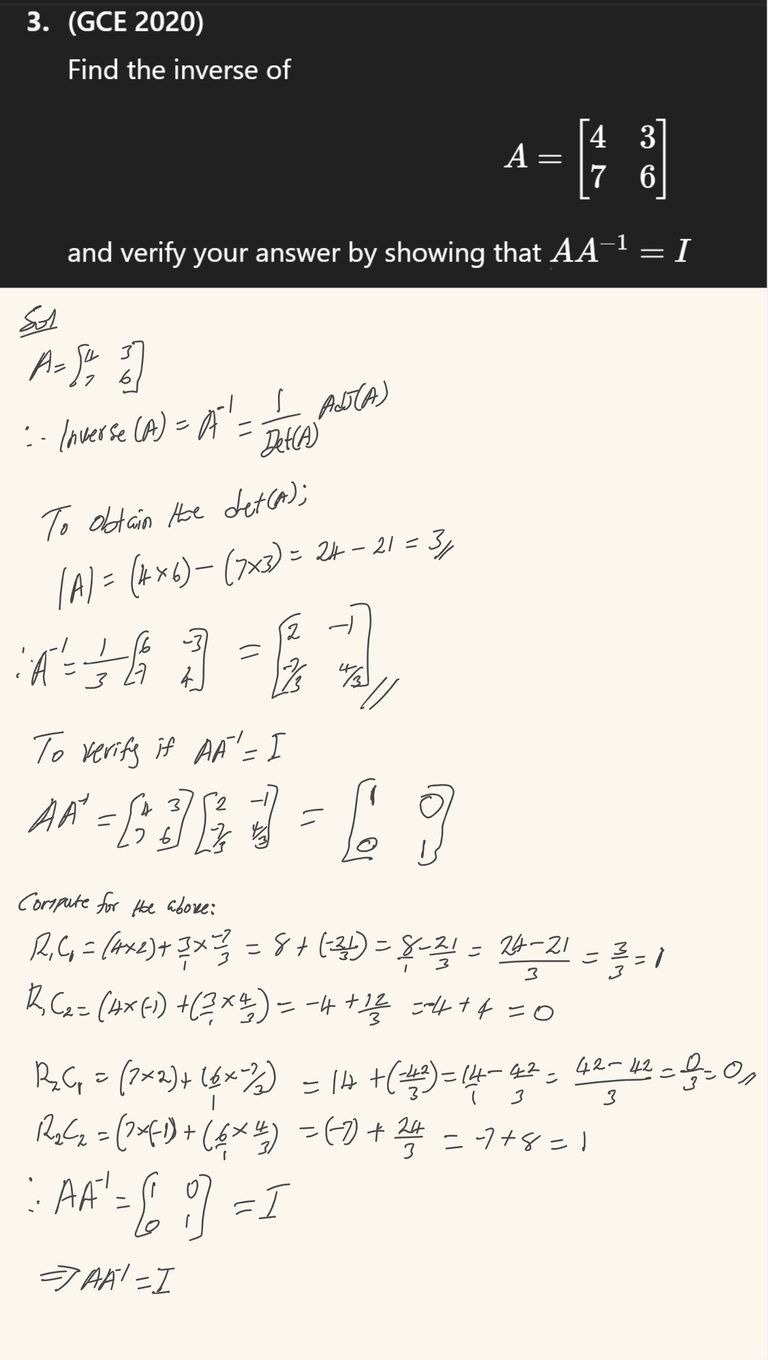 3. (GCE 2020)
Find the inverse of
A = [4 3
7 6]
and verify your answer by showing that AA⁻¹ = I
Sol
A = [4 3
7 6]
∴ Inverse (A) = A⁻¹ = 1/Det(A) Adj(A)
To obtain the det(A);
|A| = (4×6) − (7×3) = 24 − 21 = 3//
∴ A⁻¹ = 1/3 [6 −3
−7 4] = [2 −1
−7/3 4/3]//
To verify if AA⁻¹ = I
AA⁻¹ = [4 3
7 6] [2 −1
−7/3 4/3] = [1 0
0 1]
Compute for the above:
R₁C₁ = (4×2) + 3/1 × −7/3 = 8 + (−21/3) = 8/1 − 21/3 = 24−21/3 = 3/3 = 1
R₁C₂ = (4×(−1) + (3/1 × 4/3) = −4 + 12/3 = −4 + 4 = 0
R₂C₁ = (7×2) + (6/1 × −7/3) = 14 + (−42/3) = 14/1 − 42/3 = 42−42/3 = 0/3 = 0//
R₂C₂ = (7×(−1) + (6/1 × 4/3) = (−7) + 24/3 = −7 + 8 = 1
∴ AA⁻¹ = [1 0
0 1] = I
⇒ AA⁻¹ = I